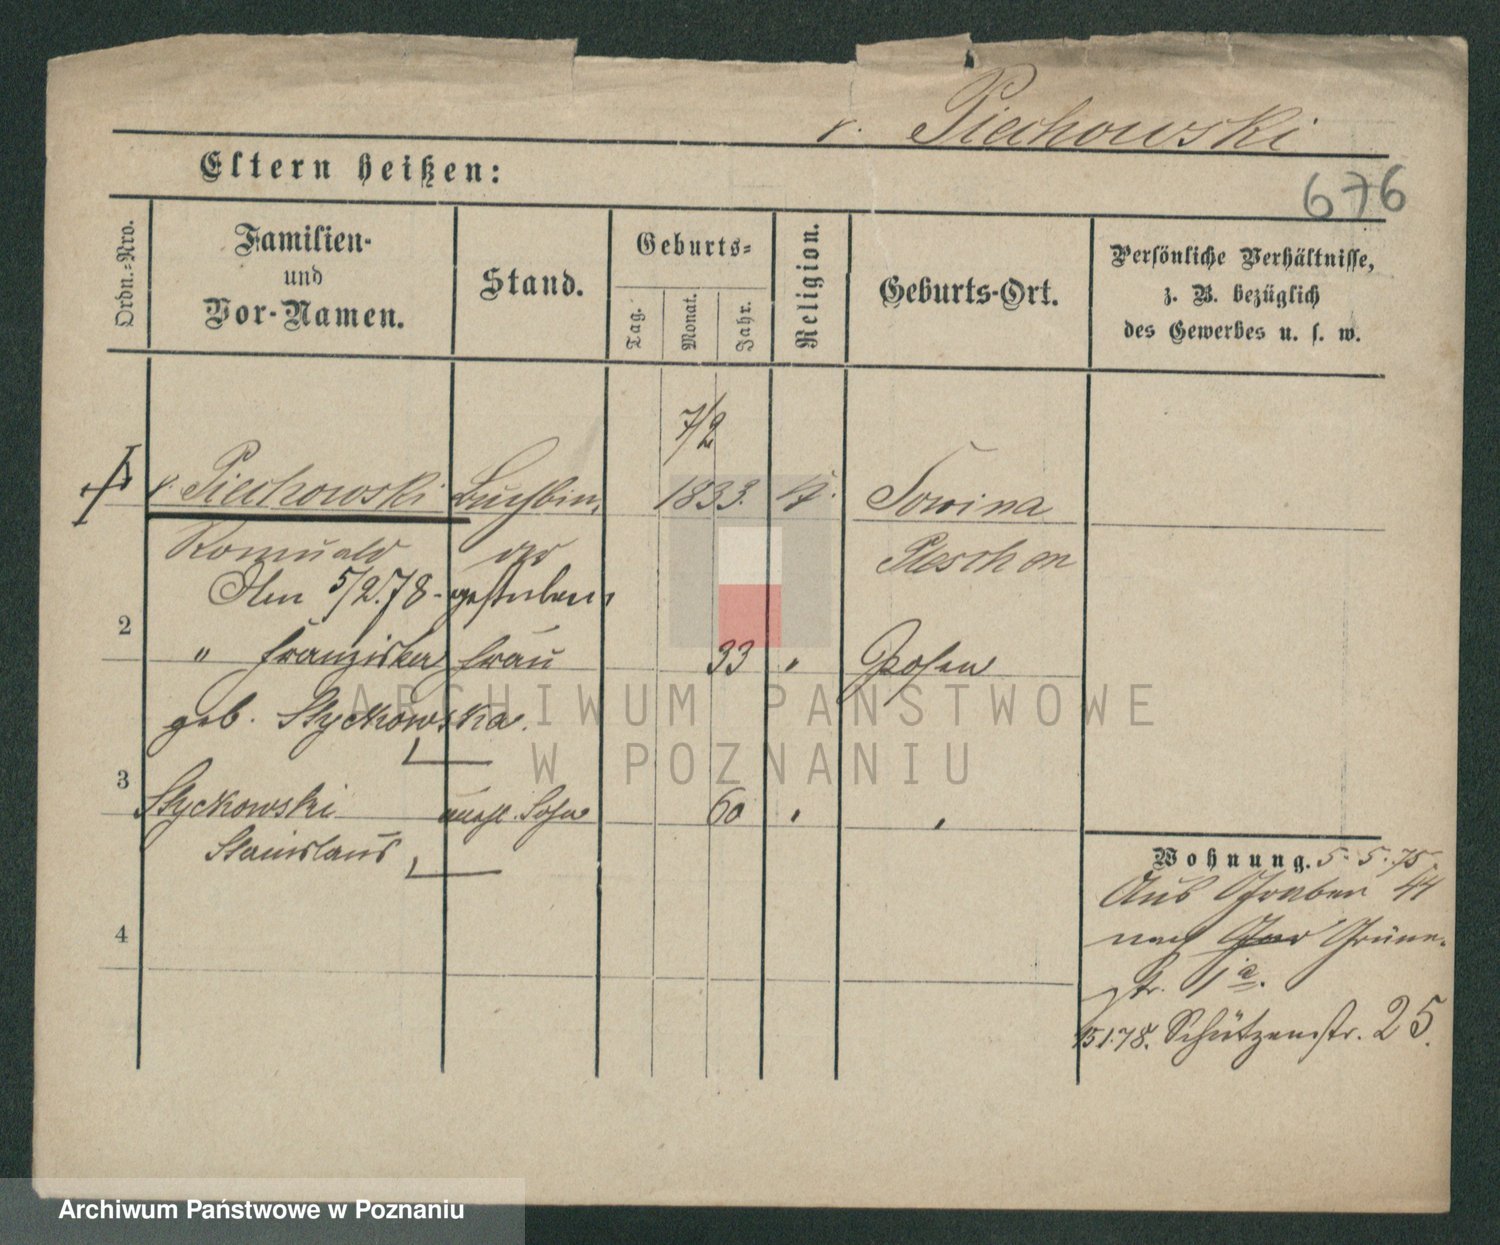 v. Piechowski
Eltern heißen:
676
Ordn.-Nro.
Familien- und Vor-Namen.
Stand.
Geburts-
Tag.
Monat.
Jahr.
Religion.
Geburts-Ort.
Persönliche Verhältnisse,
z. B. bezüglich
des Gewerbes u. s. w.
7/2
v. Piechowski Buchbin- 1833. k. Sowina
Romuald der Pleschen
Am 5/2.78 gestorben
2 " Franziska Frau 33 " Posen
geb. Styckowska.
3 Styckowski Sohn 60 " "
Stanislaus
4
Wohnung. 5.5.75.
Aus Graben 44
nach Grüne-
str. 1a.
15.1.78. Schützenstr. 25.
ARCHIWUM PAŃSTWOWE
W POZNANIU
Archiwum Państwowe w Poznaniu